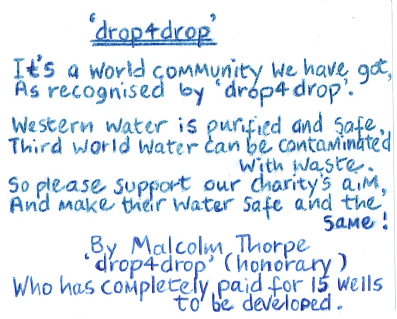 'drop4drop'
It's a world community we have got,
As recognised by 'drop4drop'.
Western water is purified and safe,
Third world water can be contaminated
with waste.
So please support our charity's aim,
And make their water safe and the
same!
By Malcolm Thorpe
'drop4drop' (honorary)
Who has completely paid for 15 wells
to be developed.